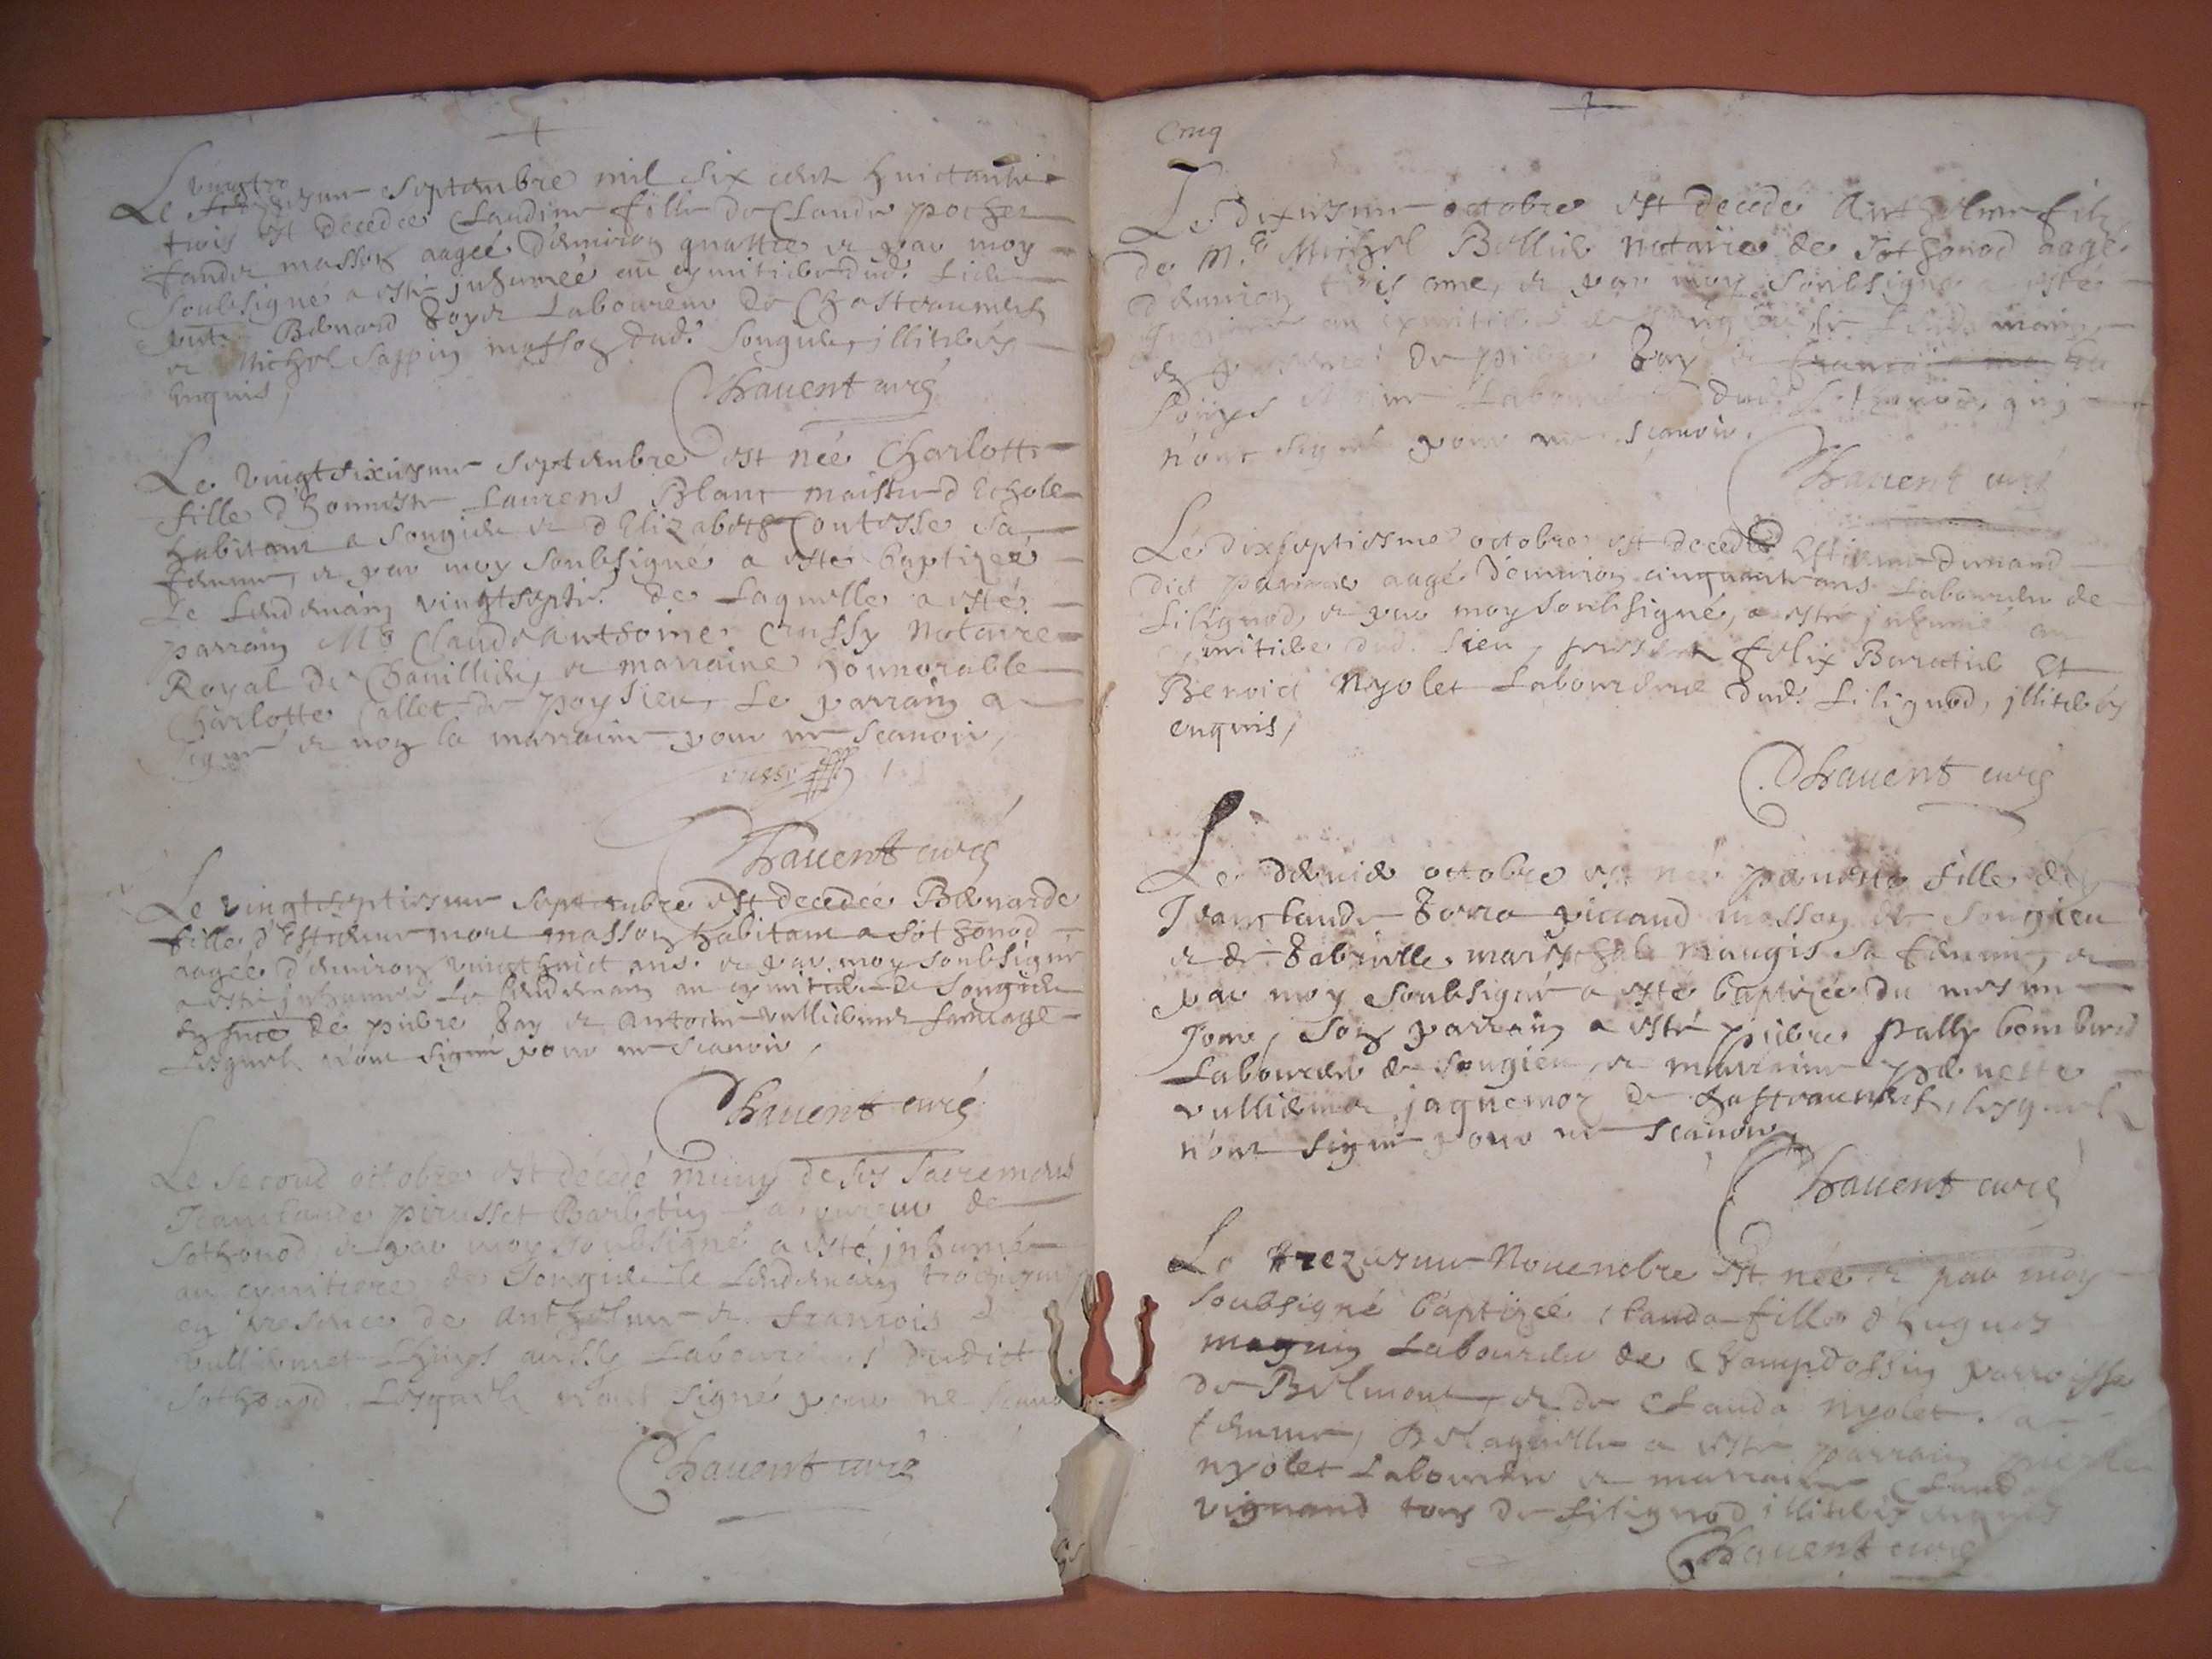 vingtro
Le septembre mil six cent huictante
trois est decedée Claudine fille de Claude pochet
masson aageé d'environ quattre et par moy
soubsigné a esté inhumeé au cymitiere dud. lieu
Bernard Goyet Laboureur de Chastraument
et Michel Sappin masson dud. Songieu, illiterés
enquis,
Chavent curé
Le vingtsixiesme septembre est neé Charlotte
fille d'honneste Laurens Blanc maistre d'echole
habitant a Songieu et d'Elizabeth Contesse sa
femme, et par moy soubsigné a esté baptizeé
Le Lendemain vingtsepti.e de Laquelle a esté
parrain M.e Claude Anthoine Crussy Notaire
Royal de Chavillieu, et marraine honnorable
Charlotte Callet de poysieu, Le parrain a
signé et non la marraine pour ne scavoir,
Chavent curé
Le vingtseptiesme septembre est decedée Bernarde
fille d'Estienne more masson habitant a Sothonod
aageé d'environ vingthuict ans et par moy soubsigné
a esté inhumeé Le Lendemain au cymitiere de Songieu
en pnce de pierre Gay et Antoine vulliermet
Lesquels n'ont signé pour ne scavoir,
Chavent curé
Le second octobre est décédé muny de ses sacremens
Jeanclaude perrusset Barbetin Laboureur de
Sothonod, et par moy soubsigné a esté inhumé
au cymitiere de Songieu le Lendemain troisiesme
en presence de Anthelme et François
vulliermet aussy Laboureurs dudict
Sothonod, Lesquels n'ont signé pour ne scavo
Chavent curé
cinq
Le dixiesme octobre est decedé Anthelme filz
de M.e Michel Bellier Notaire de Sothonod aagé
d'environ trois ans, et par moy soubsigné a esté
au cymitiere de Songieu le Lendemain,
en de pierre Gay et
Laboureurs dud. Sothonod, qui
n'ont signé pour ne scavoir.
Chavent curé
Le dixseptiesme octobre est decedé Estienne Dunand
dict aagé d'environ cinquante ans Laboureur de
Lilignod, et par moy soubsigné, a esté inhumé au
cymitiere dud. Lieu, present Felix Baratier et
Benoict Nyolet Laboureurs dud. Lilignod, illiterés
enquis,
Chavent curé
Le dernier octobre est neé pernette fille de
Jeanclaude masson de Songieu
et de Gabrielle mareschal Maugis sa femme, et
par moy soubsigné a esté baptizeé du mesme
jour, son parrain a esté pierre
Laboureur de Songieu, et marraine pernette
vulliermoz jaquemoz de Chastraument, lesquels
n'ont signé pour ne scavoir,
Chavent curé
Le trezesme Novembre est neé et par moy
soubsigné baptizeé Clauda fille d'hugues
magnin Laboureur de Champdossin parroisse
de Belmont, et de Clauda Nyolet sa
femme, de Laquelle a esté parrain pierre
nyolet Laboureur et marraine Clauda
vignand tous de Lilignod illiterés enquis
Chavent curé